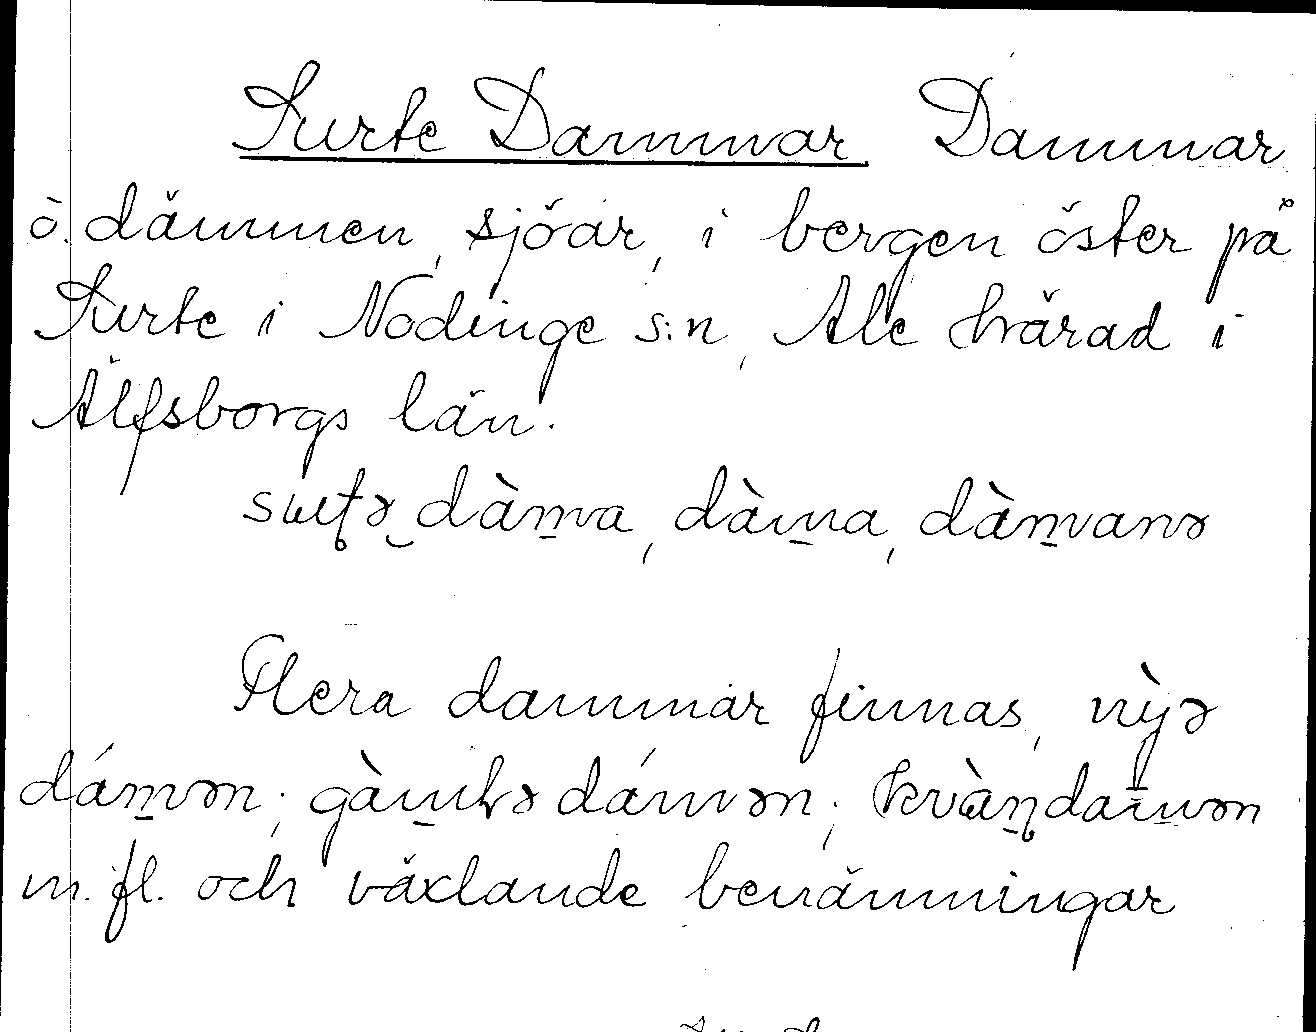 Surte Dammar Dammar
ò. dämmen, sjöar, i bergen öster på
Surte i Nödinge s:n, Ale härad i
Älfsborgs län.
dàm̱a, dàm̱a, dàm̱anə
Flera dammar finnas, nỳə
dám̱ən; gàm̱ḷə dámən; kvàṇdam̱ən
m. fl. och växlande benämningar